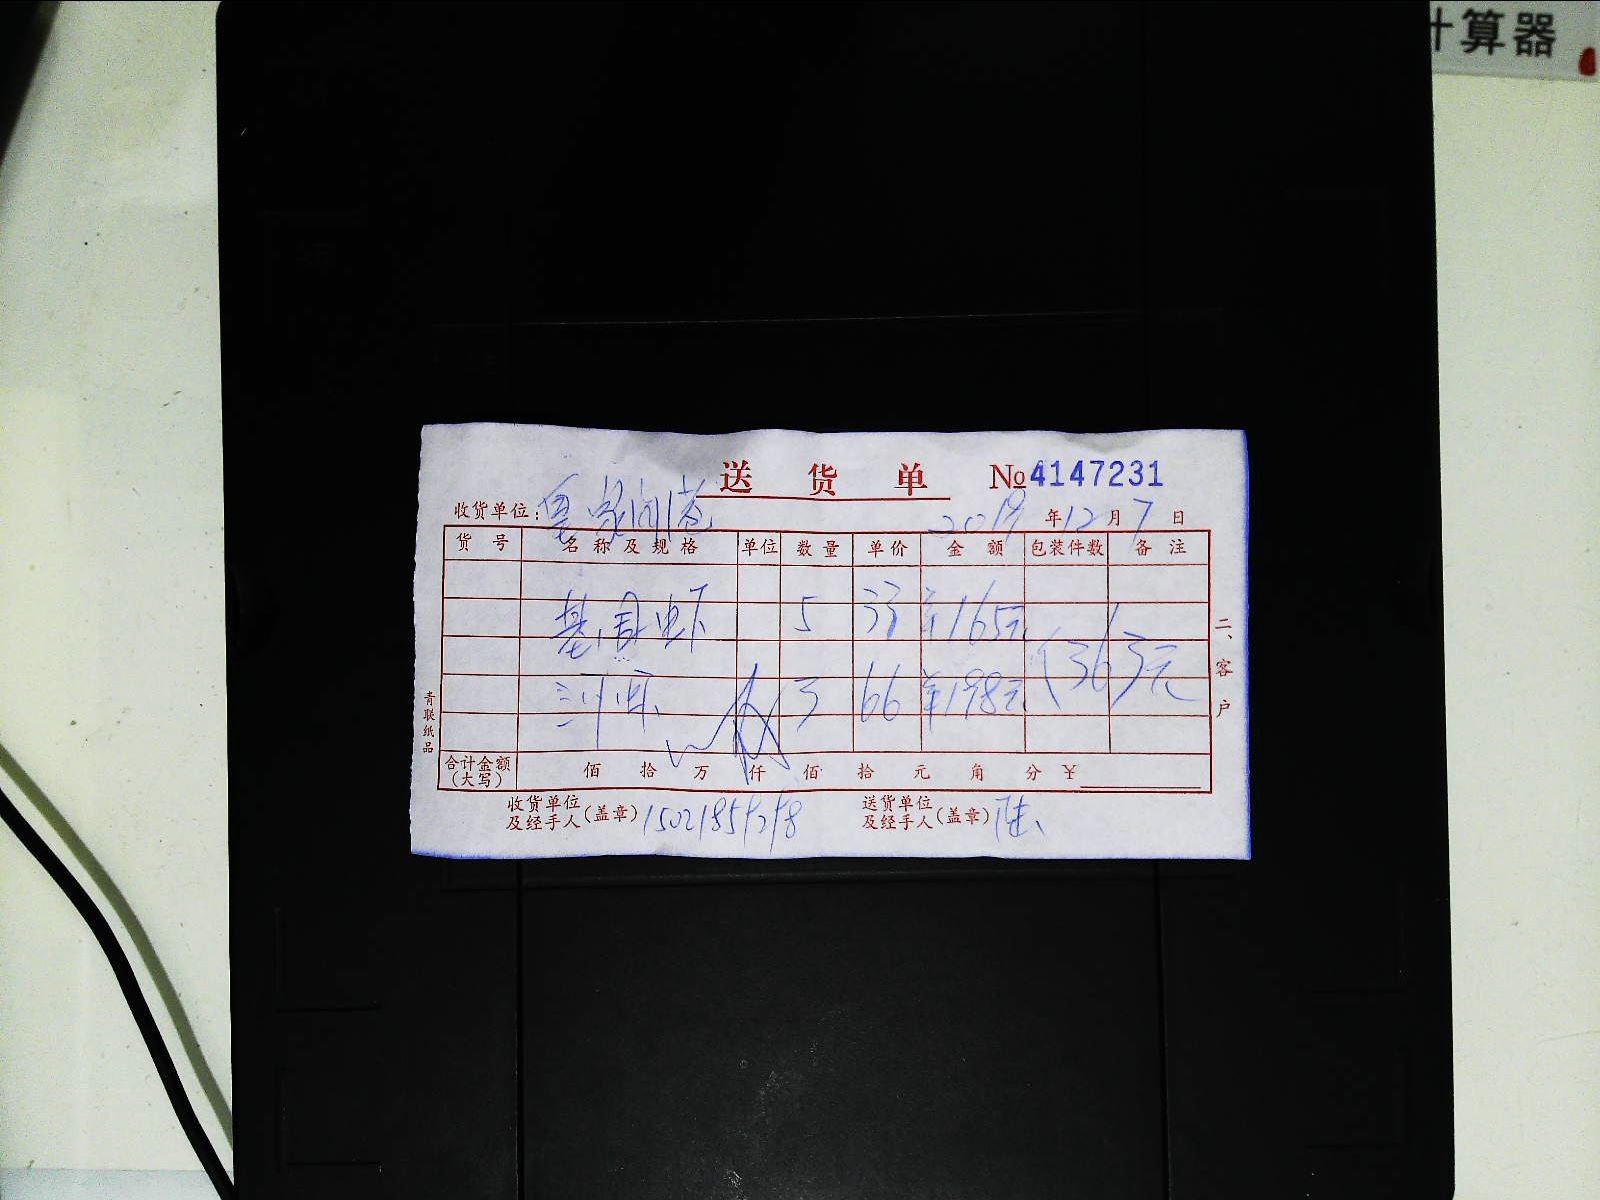 计算器
送货单 №4147231
收货单位: 2019年12月7日
货号 名称及规格 单位 数量 单价 金额 包装件数 备注
基围虾 5 33 165元
河虾 3 66 198元 363元
合计金额(大写) 佰 拾 万 仟 佰 拾 元 角 分 ¥
收货单位及经手人(盖章) 送货单位及经手人(盖章) 陆
二、客户
青联纸品